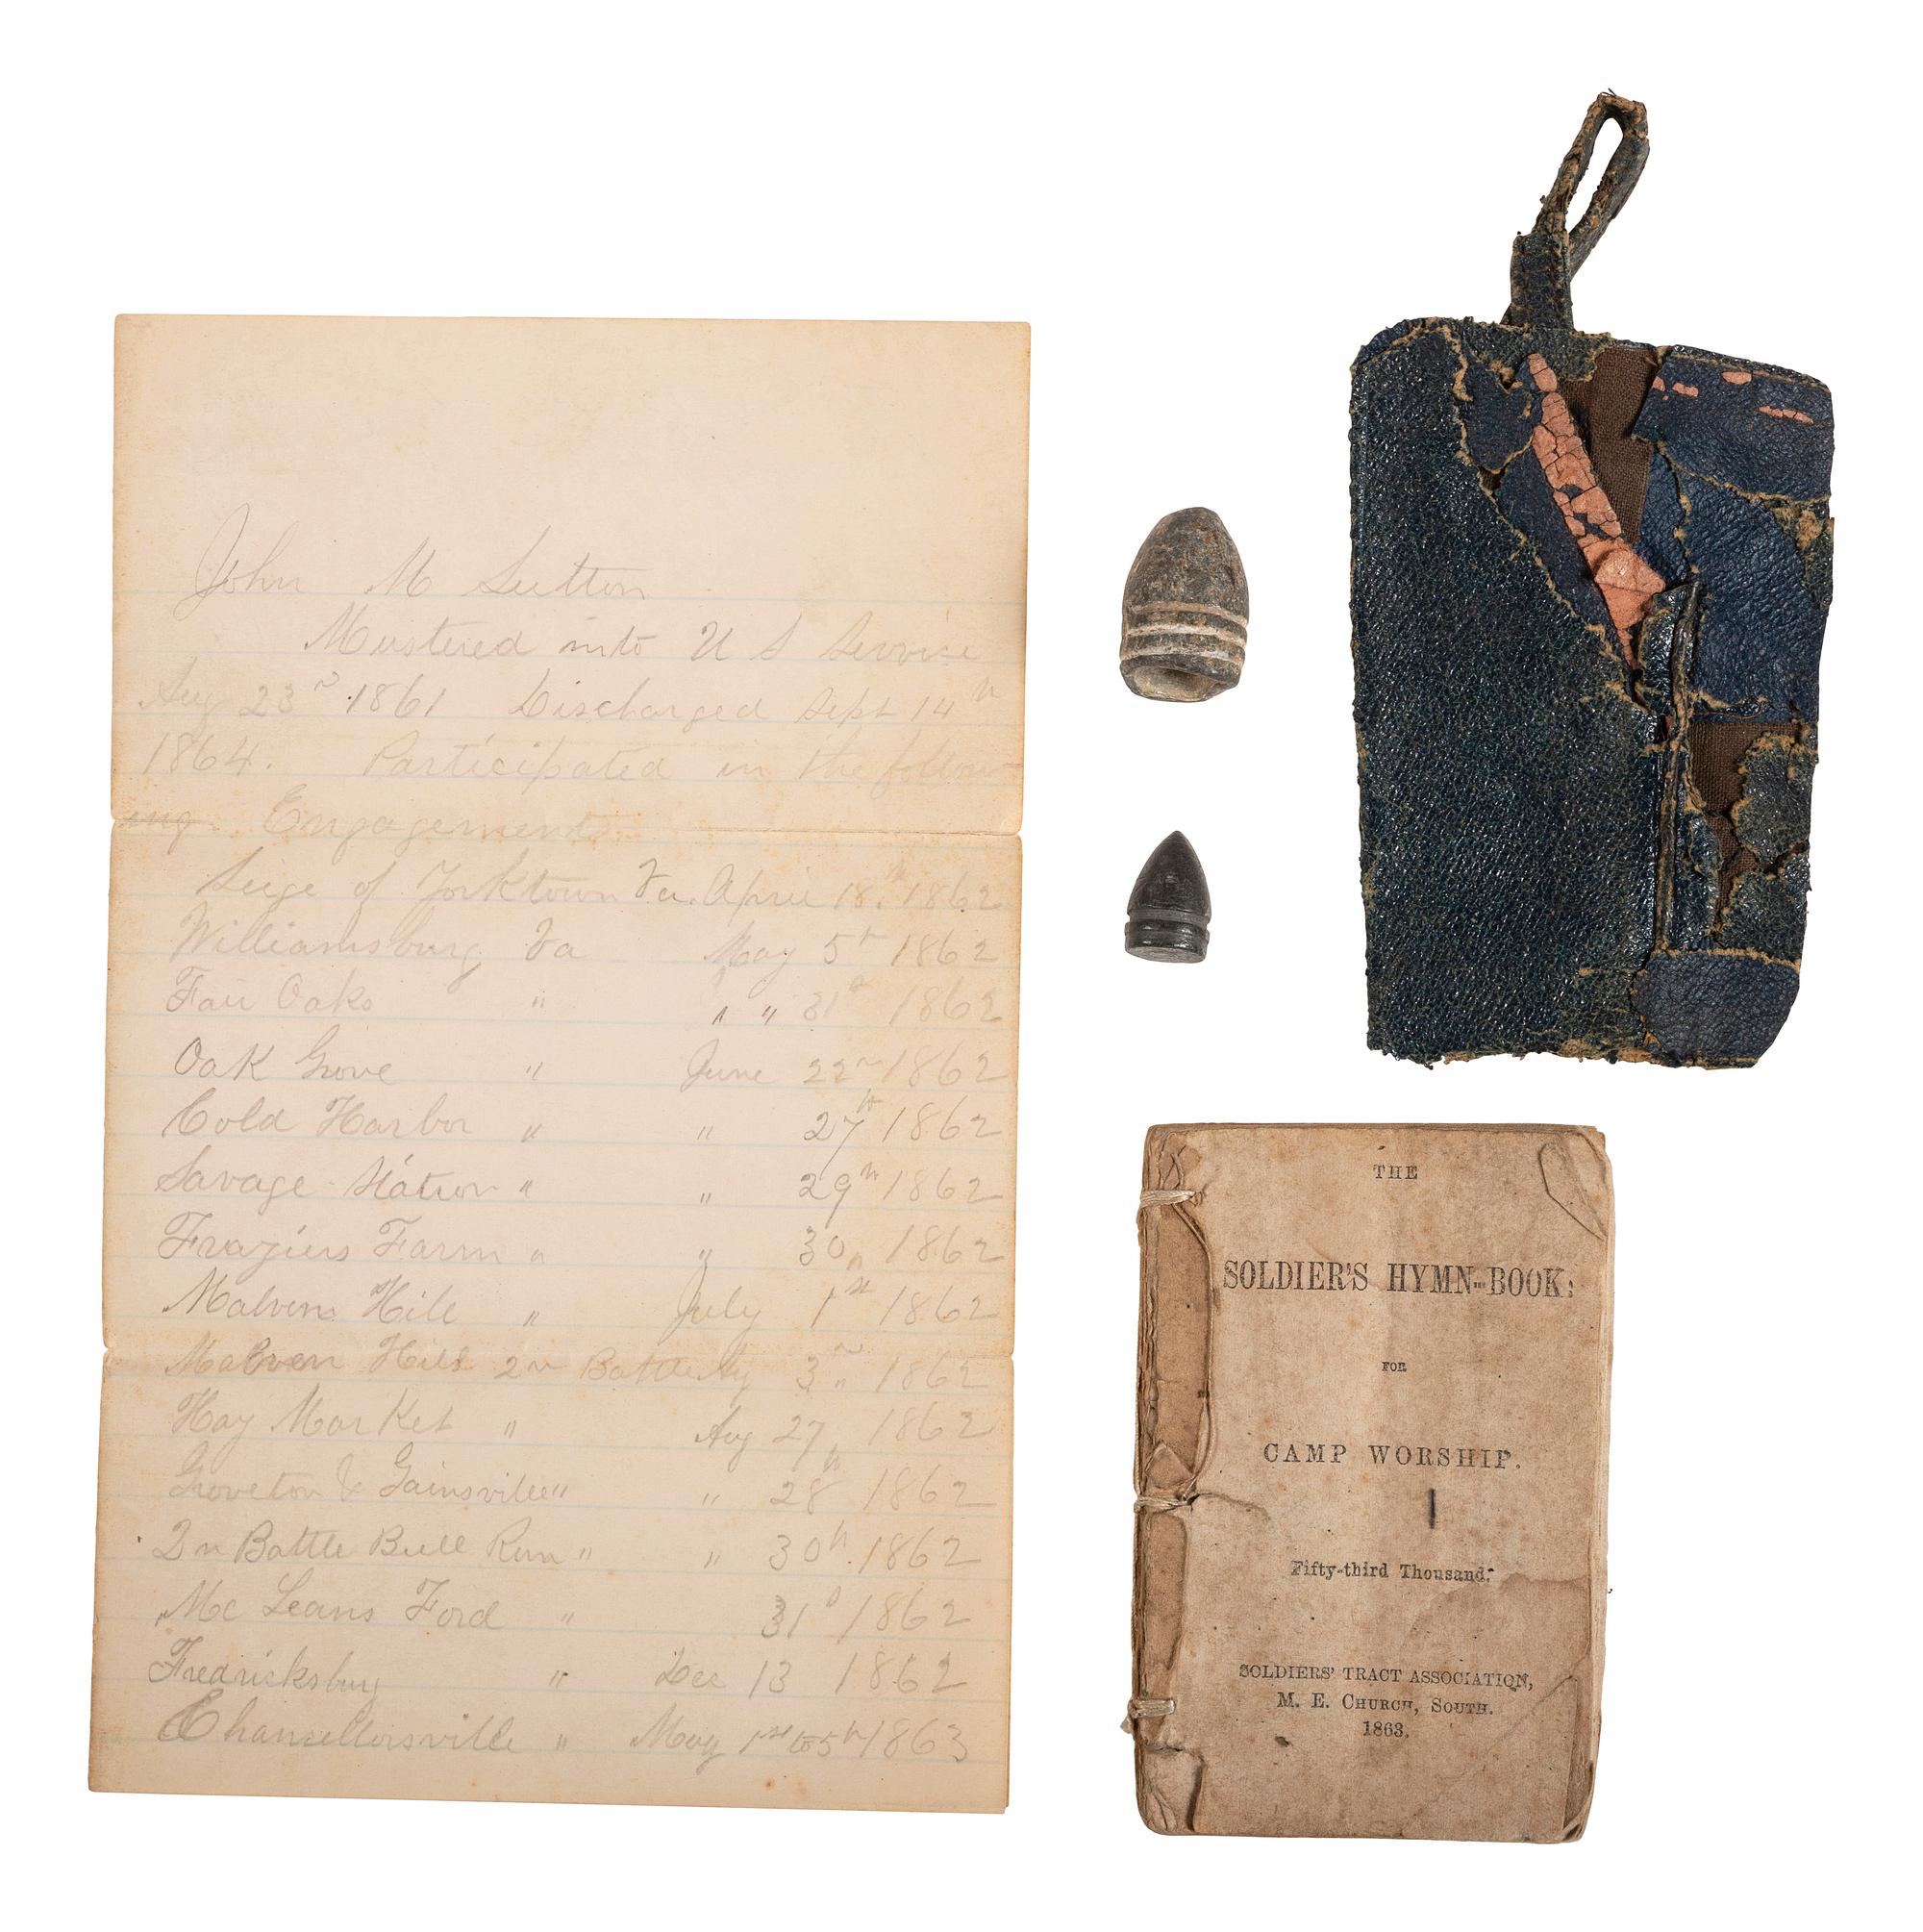 John M Sutton
Mustered into U S Service
Aug 23rd 1861 Discharged Sept 14th
1864. Participated in the follow-
ing. Engagements
Seige of Yorktown Va. April 18th 1862
Williamsburg Va May 5th 1862
Fair Oaks " " 31st 1862
Oak Grove " June 22nd 1862
Cold Harbor " " 27th 1862
Savage Station " " 29th 1862
Fraziers Farm " " 30th 1862
Malvern Hill " July 1st 1862
Malvern Hill 2n Battle 3rd 1862
Hay Market " Aug 27th 1862
Groveton & Gainsville " " 28th 1862
2n Battle Bull Run " " 30th 1862
Mc Leans Ford " 31st 1862
Fredricksburg " Dec 13 1862
Chansellorsville " May 1st to 5th 1863
THE
SOLDIER'S HYMN-BOOK:
FOR
CAMP WORSHIP.
Fifty-third Thousand.
SOLDIERS' TRACT ASSOCIATION,
M. E. CHURCH, SOUTH.
1863.